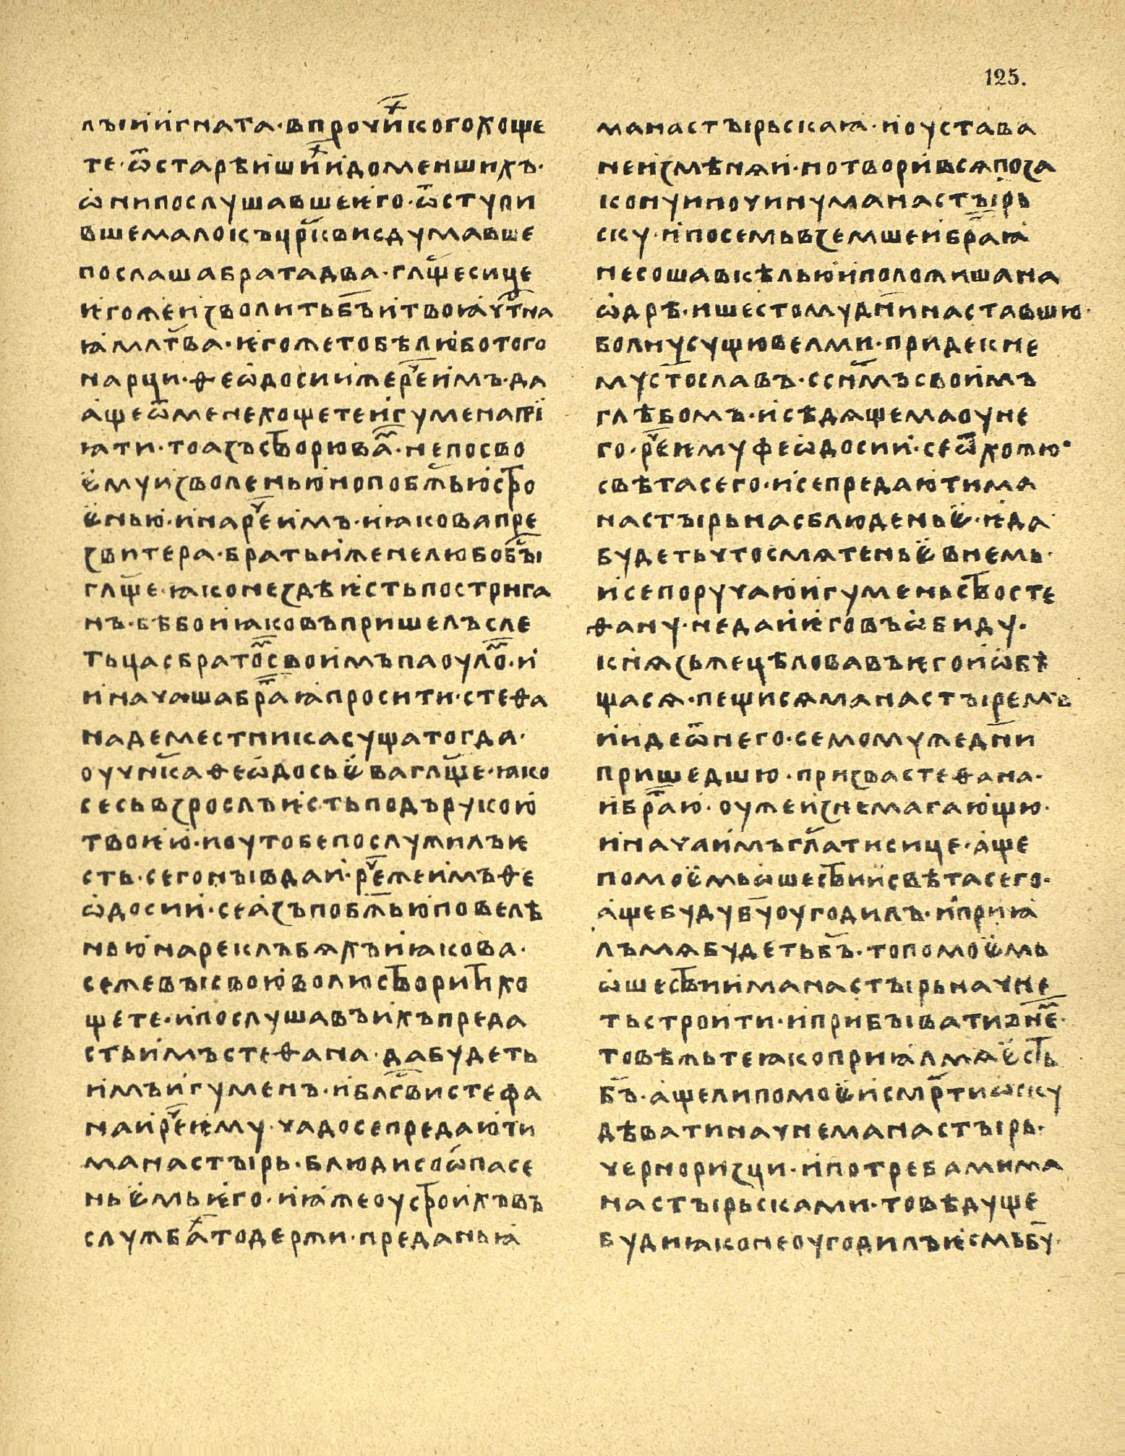 125.
лъı и игната · в прочи̑х кого хоще
те · ѿ старѣиши̑х и до меншихъ ·
ѡни послушавше ѥго · ѿступи
вше мало къ цр҃кви сдумавше
послаша брата два · гл҃ще сице
ѥгоже изъволить бъ҃ и твоꙗ чт҃на
ꙗ мл҃тва · ѥгоже тобѣ любо того
нарци · ѳеѡдосии же реч҃ имъ · да
аще ѿ мене хощете игумена прї
ꙗти · то азъ створю ва̑м · не по сво
ѥму изъволенью но по бж҃ью стро
ѥнью · и нареч҃ имъ · иꙗкова пре
звитера · братьи же не любо бъı҃
гл҃ще · ꙗко не здѣ ѥсть пострига
нъ · бѣ бо иꙗковъ пришелъ с ле
тьца с брато̑м своимъ пауло̑м · и
и начаша бра҃ꙗ просити · стеѳа
на деместника суща тогда ·
оучн҃ка ѳеѡдосьѥва гл҃ще · ꙗко
сесь взрослъ ѥсть подъ рукою
твоѥю · и оу тобе послужилъ ѥ
сть · сего нъı вдаи · реч҃ же имъ ѳе
ѡдосии · се азъ по бж҃ью повелѣ
нью нареклъ бѧхъ иꙗкова ·
се же въı свою волю створити хо
щете · и послушавъ ихъ преда
сть имъ стеѳана · да будеть
имъ игуменъ · и блг҃ви стефа
на и реч҃ ѥму · чадо се предаю ти
манастъıрь · блюди со ѡпасе
ньѥмь ѥго · и ꙗже оустроихъ въ
служба̑х то держи · преданьꙗ
манастъıрьскаꙗ · и оустава
не измѣнѧи · но твори всѧ по за
кону и по чину манастъıрь
ску · и по семь вземше и бра҃ꙗ
несоша в кѣлью и положиша на
ѡдрѣ · и шестому дн҃и наставшю ·
болну сущю велми · приде к не
му ст҃ославъ · с сн҃мъ своимъ
глѣбомъ · и сѣдѧщема оу не
го · реч҃ ѥму феѡдосии · се ѿхожю
свѣта сего · и се предаю ти ма
настъıрь на сблюденьѥ · ѥда
будеть что смѧтеньѥ в немь ·
и се поручаю игуменьство сте
ѳану · не даи ѥго въ ѡбиду ·
кнѧзь же цѣловавъ ѥго и ѡбѣ
щасѧ · пещисѧ манастъıремъ
и иде ѿ него · семому же дн҃и
пришедшю · призва стеѳана ·
и бра҃ю · оуже изнемагающю ·
и нача имъ гл҃ати сице · аще
по моѥмь ѡшествии свѣта сего ·
аще буду бу҃ оугодилъ · и приꙗ
лъ мѧ будеть бъ҃ · то по моѥмь
ѡшествии манастъırь начне
ть строити · и прибъıвати в не̑м ·
то вѣжьте ꙗко приꙗл мѧ ѥсть
бъ҃ · аще ли по моѥи смр҃ти ѡску
дѣвати начне манастъıрь ·
черноризци · и потребами ма
настъıрьсками · то вѣдуще
буди ꙗко не оугодилъ ѥсмь бу҃ ·